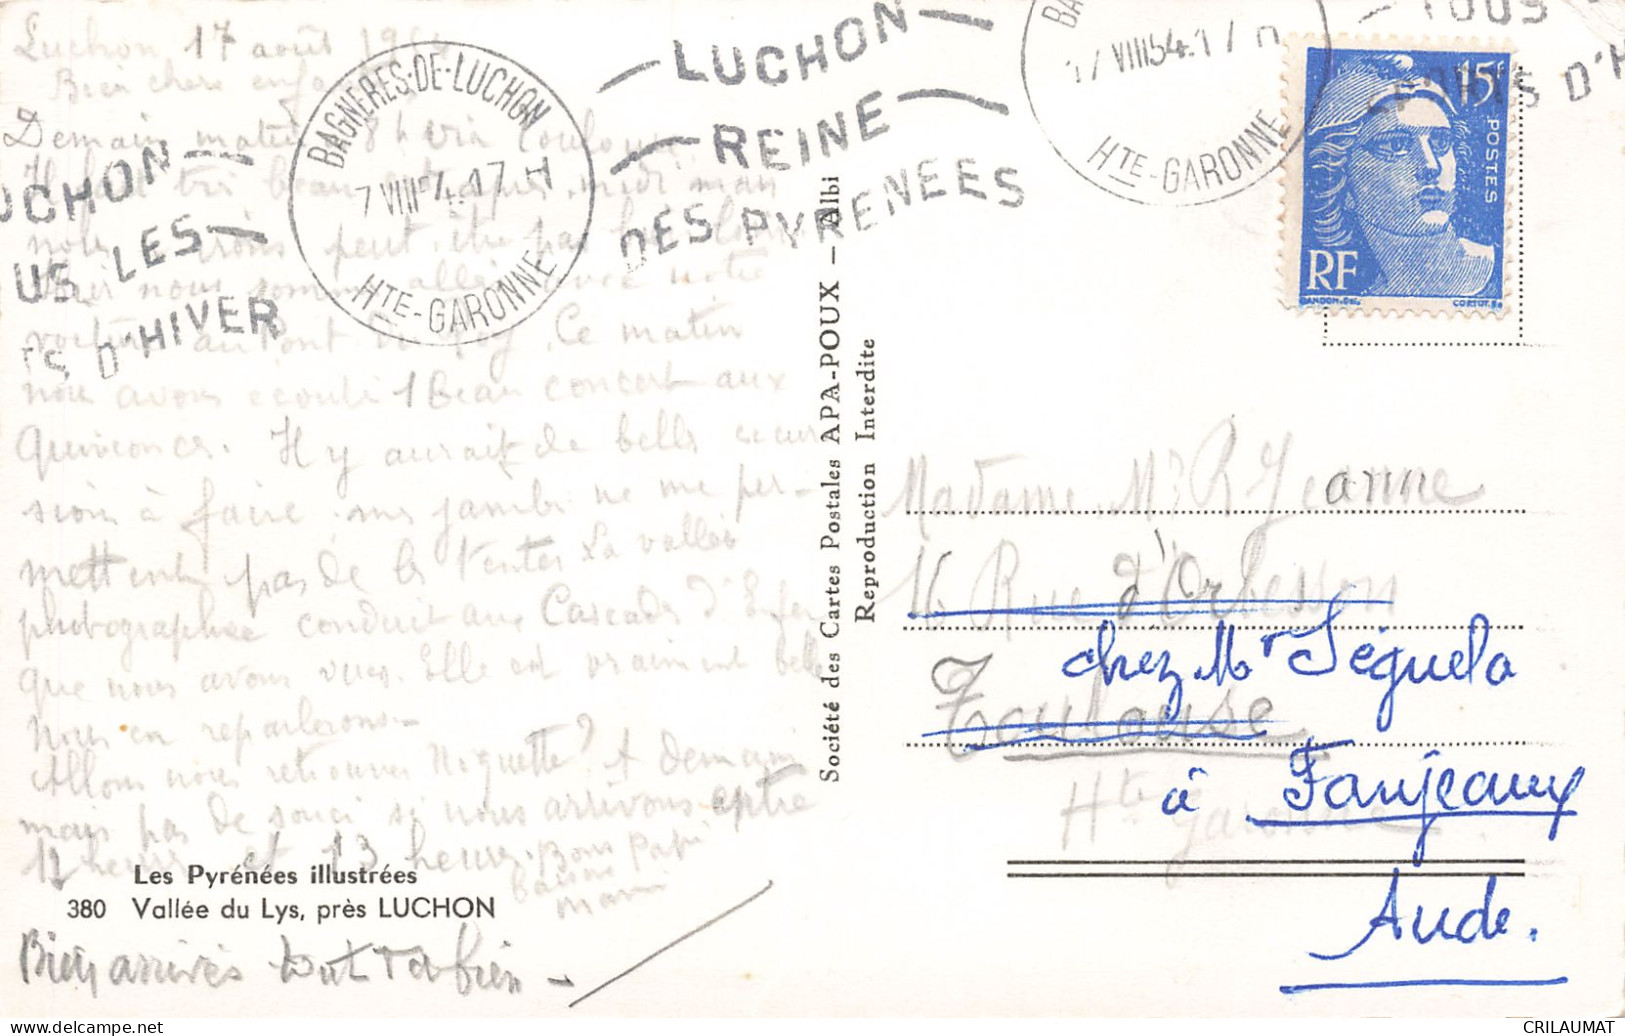 Luchon 17 août 195
Bien chers enfants
Demain matin 8 h via Toulouse.
Il fait très beau cet après-midi mais
nous irons peut-être pas bien loin.
nous sommes allés avec notre
voiture au Pont de Ravy. Ce matin
nous avons écouté 1 beau concert aux
Quinconces. Il y aurait de belles excur
sions à faire mes jambes ne me per-
mettent pas de les tenter. La vallée
photographiée conduit aux Cascades d'Enfer
que nous avons vues. Elle est vraiment belle
nous en reparlerons.-
Allons nous retrouver Moquette? A demain
mais pas de souci si nous arrivons entre
12 heures et 13 heures. Bons baisers
Papi Mami
Les Pyrénées illustrées
380 Vallée du Lys, près LUCHON
Bien arrivés tout va bien -
BAGNERES-DE-LUCHON
7 VIII 54.17 H
HTE-GARONNE
LUCHON
REINE
DES PYRENEES
LUCHON
TOUS LES
SPORTS D'HIVER
17 VIII 54.17 H
HTE-GARONNE
TOUS
SPORTS D'H
Société des Cartes Postales APA-POUX – Albi
Reproduction Interdite
15F
POSTES
RF
GANDON.Del.
CORTOT.Sc
Madame Mr R Jeanne
16 Rue d'Orbesson
Toulouse
Hte Garonne
chez Mr Séguela
à Fanjeaux
Aude.
CRILAUMAT